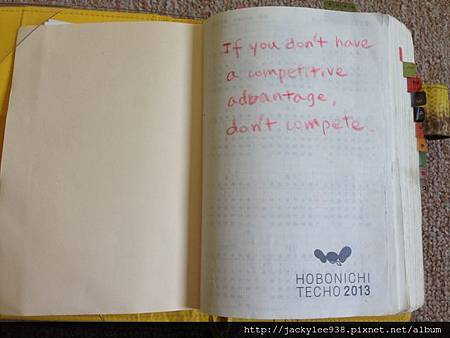 If you don't have
a competitive
advantage,
don't compete.
HOBONICHI
TECHO 2013
http://jackylee938.pixnet.net/album